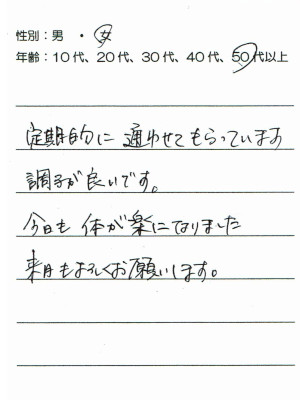 性別：男 ・ 女
年齢：10代、20代、30代、40代、50代以上
定期的に 通わせてもらっています
調子が良いです。
今日も 体が楽になりました
来月もよろしくお願いします。